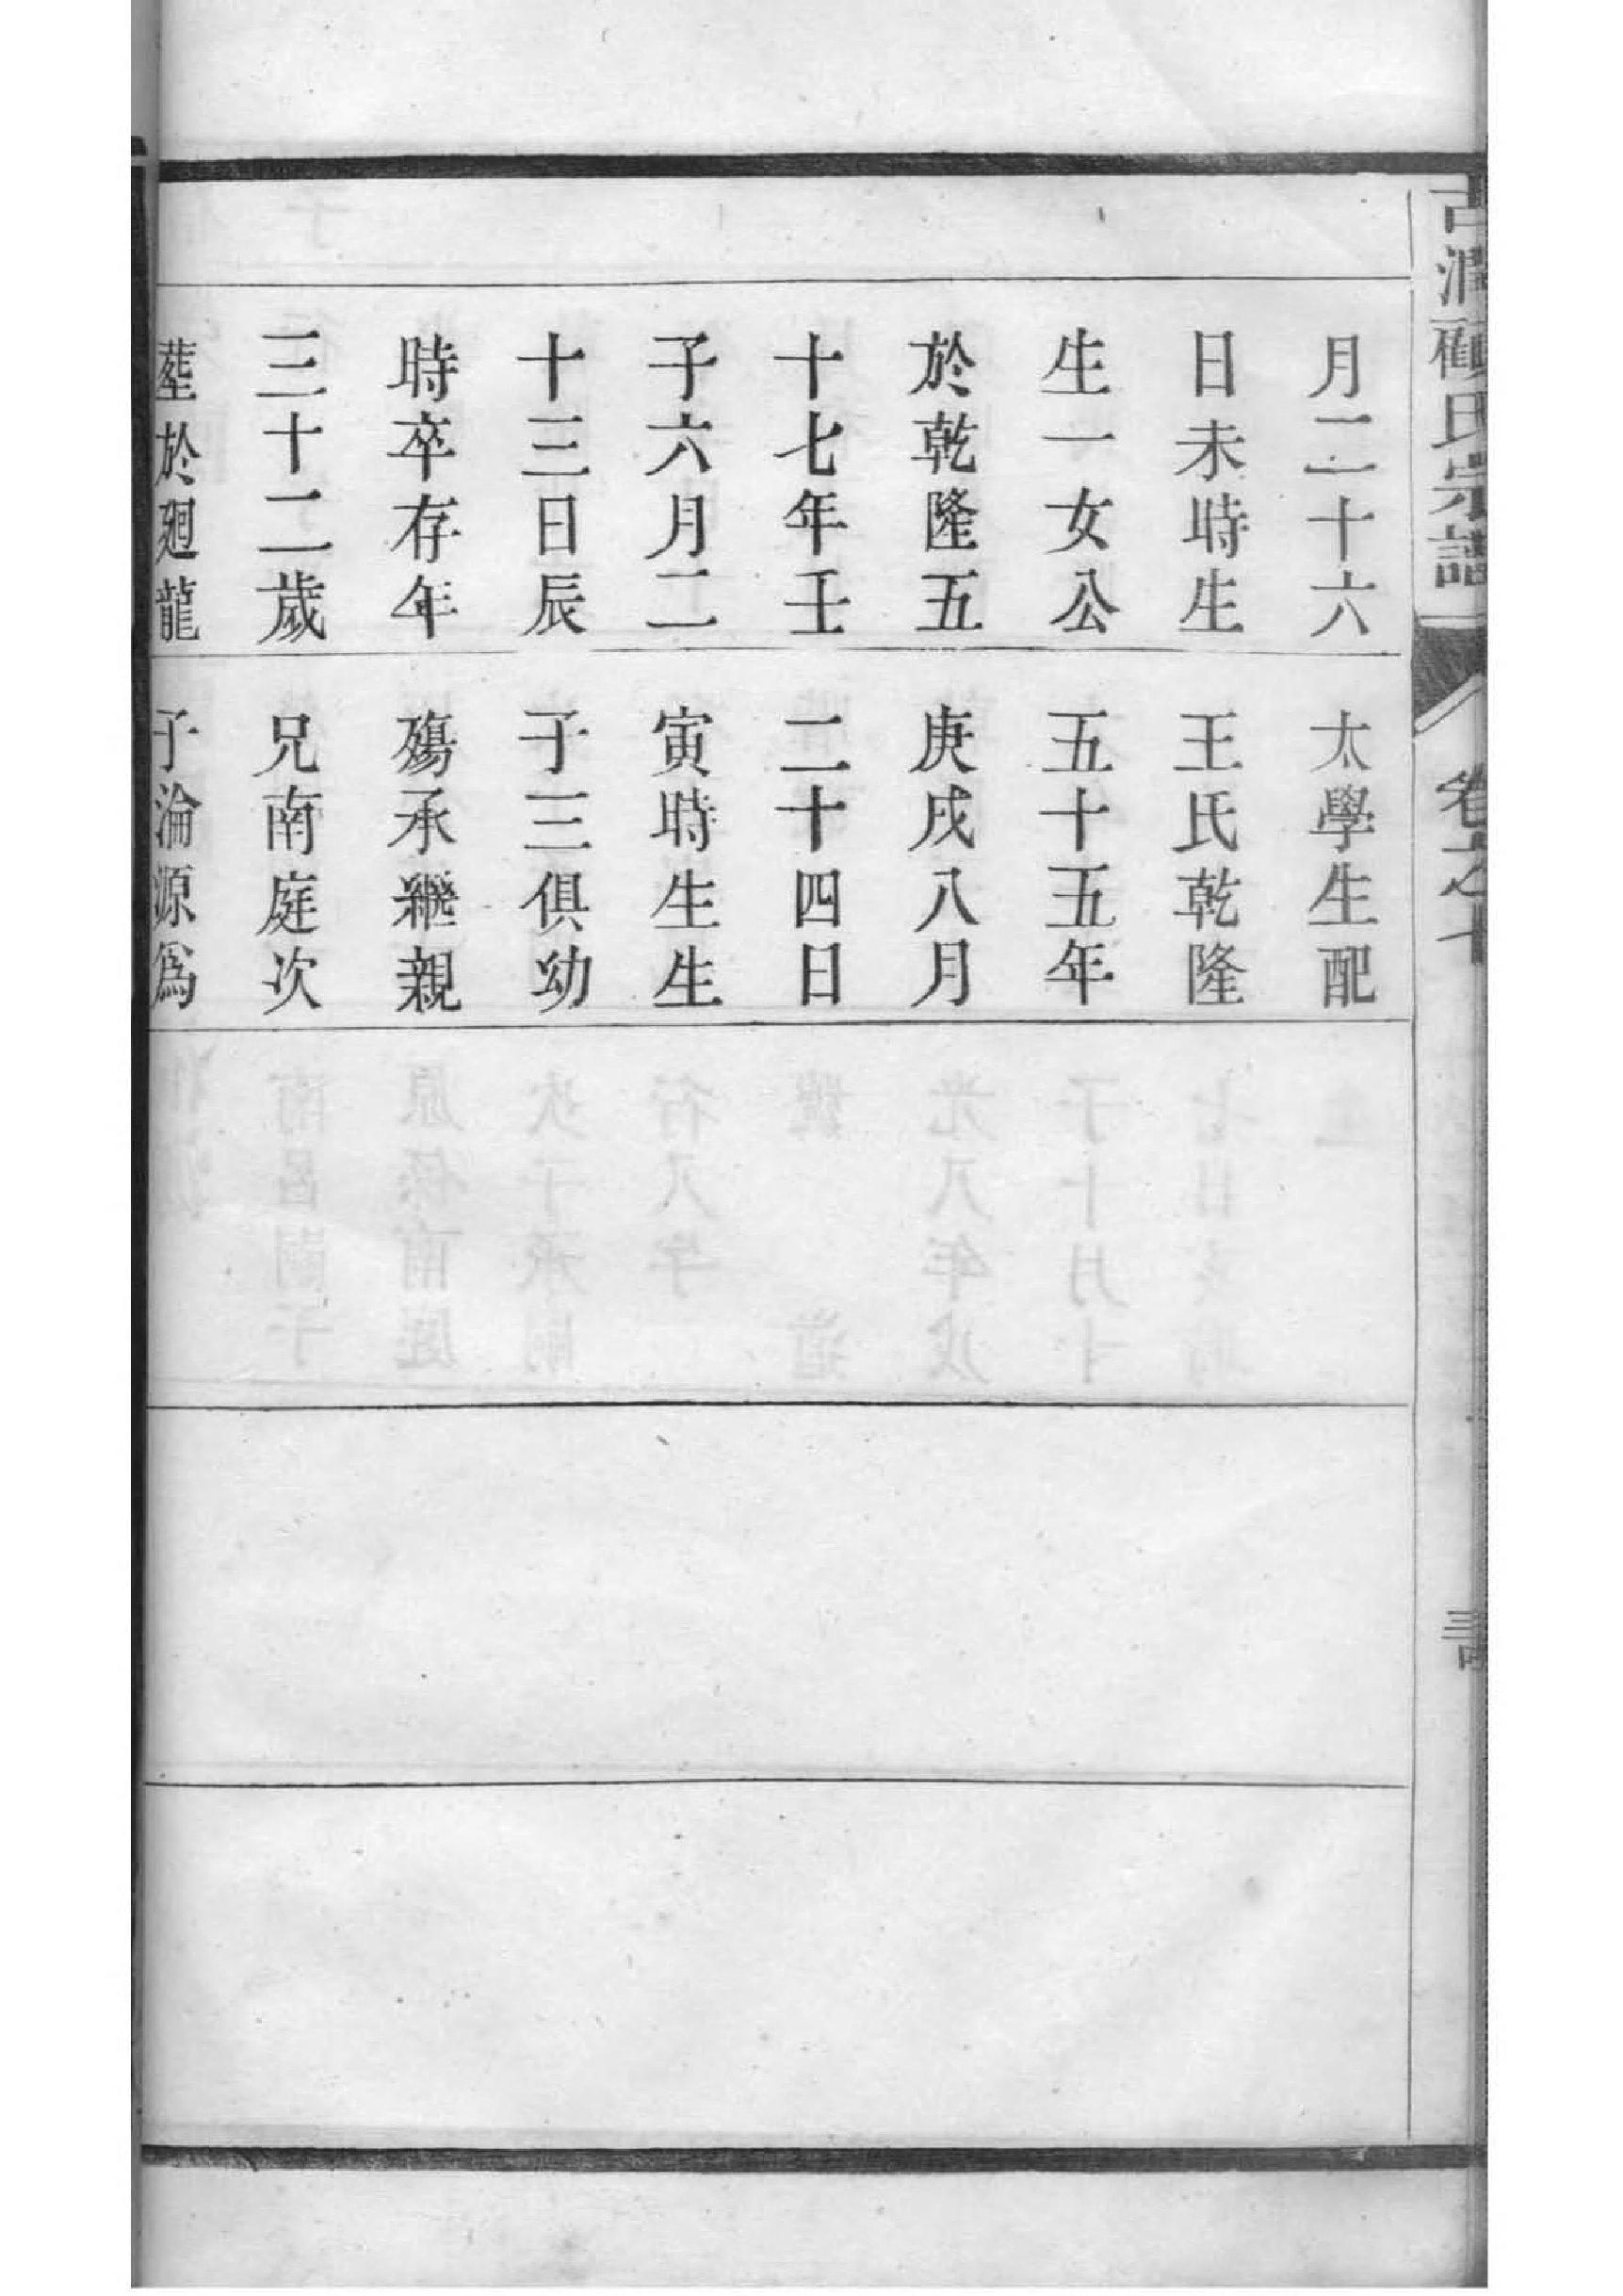 古潤顧氏宗譜
卷之七
月二十六
日未時生
生一女公
於乾隆五
十七年壬
子六月二
十三日辰
時卒存年
三十二歲
塟於廻龍
太學生配
王氏乾隆
五十五年
庚戌八月
二十四日
寅時生生
子三俱幼
殤承繼親
兄南庭次
子淪源爲